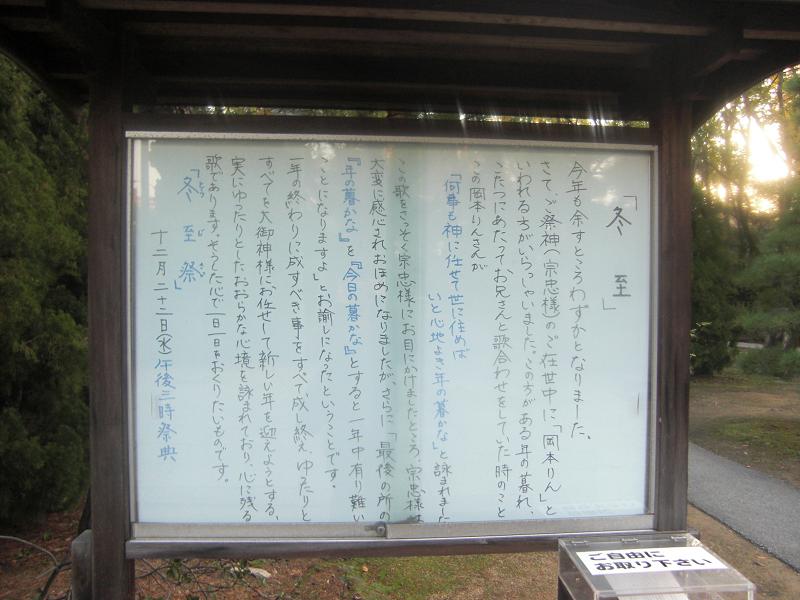 「冬至」
今年も余すところわずかとなりました。
さて、ご祭神(宗忠様)のご在世中に「岡本りん」と
いわれる方がいらっしゃいました。この方がある年の暮れ、
こたつにあたってお兄さんと歌合わせをしていた時のこと
この岡本りんさんが
「何事も神に任せて世に住めば
いと心地よき年の暮かな」と詠まれました
この歌をさっそく宗忠様にお目にかけましたところ、宗忠様は
大変に感心されおほめになりましたが、さらに「最後の所の
『年の暮かな』を『今日の暮かな』とすると一年中有り難い
ことになりますよ」とお諭しになったということです。
一年の終わりに成すべき事をすべて成し終え、ゆったりと
すべてを大御神様にお任せして新しい年を迎えようとする、
実にゆったりとしたおおらかな心境を詠まれており、心に残る
歌であります。そうした心で一日一日をおくりたいものです。
「冬至祭」
とうじさい
十二月二十二日(水)午後三時祭典
ご自由に
お取り下さい